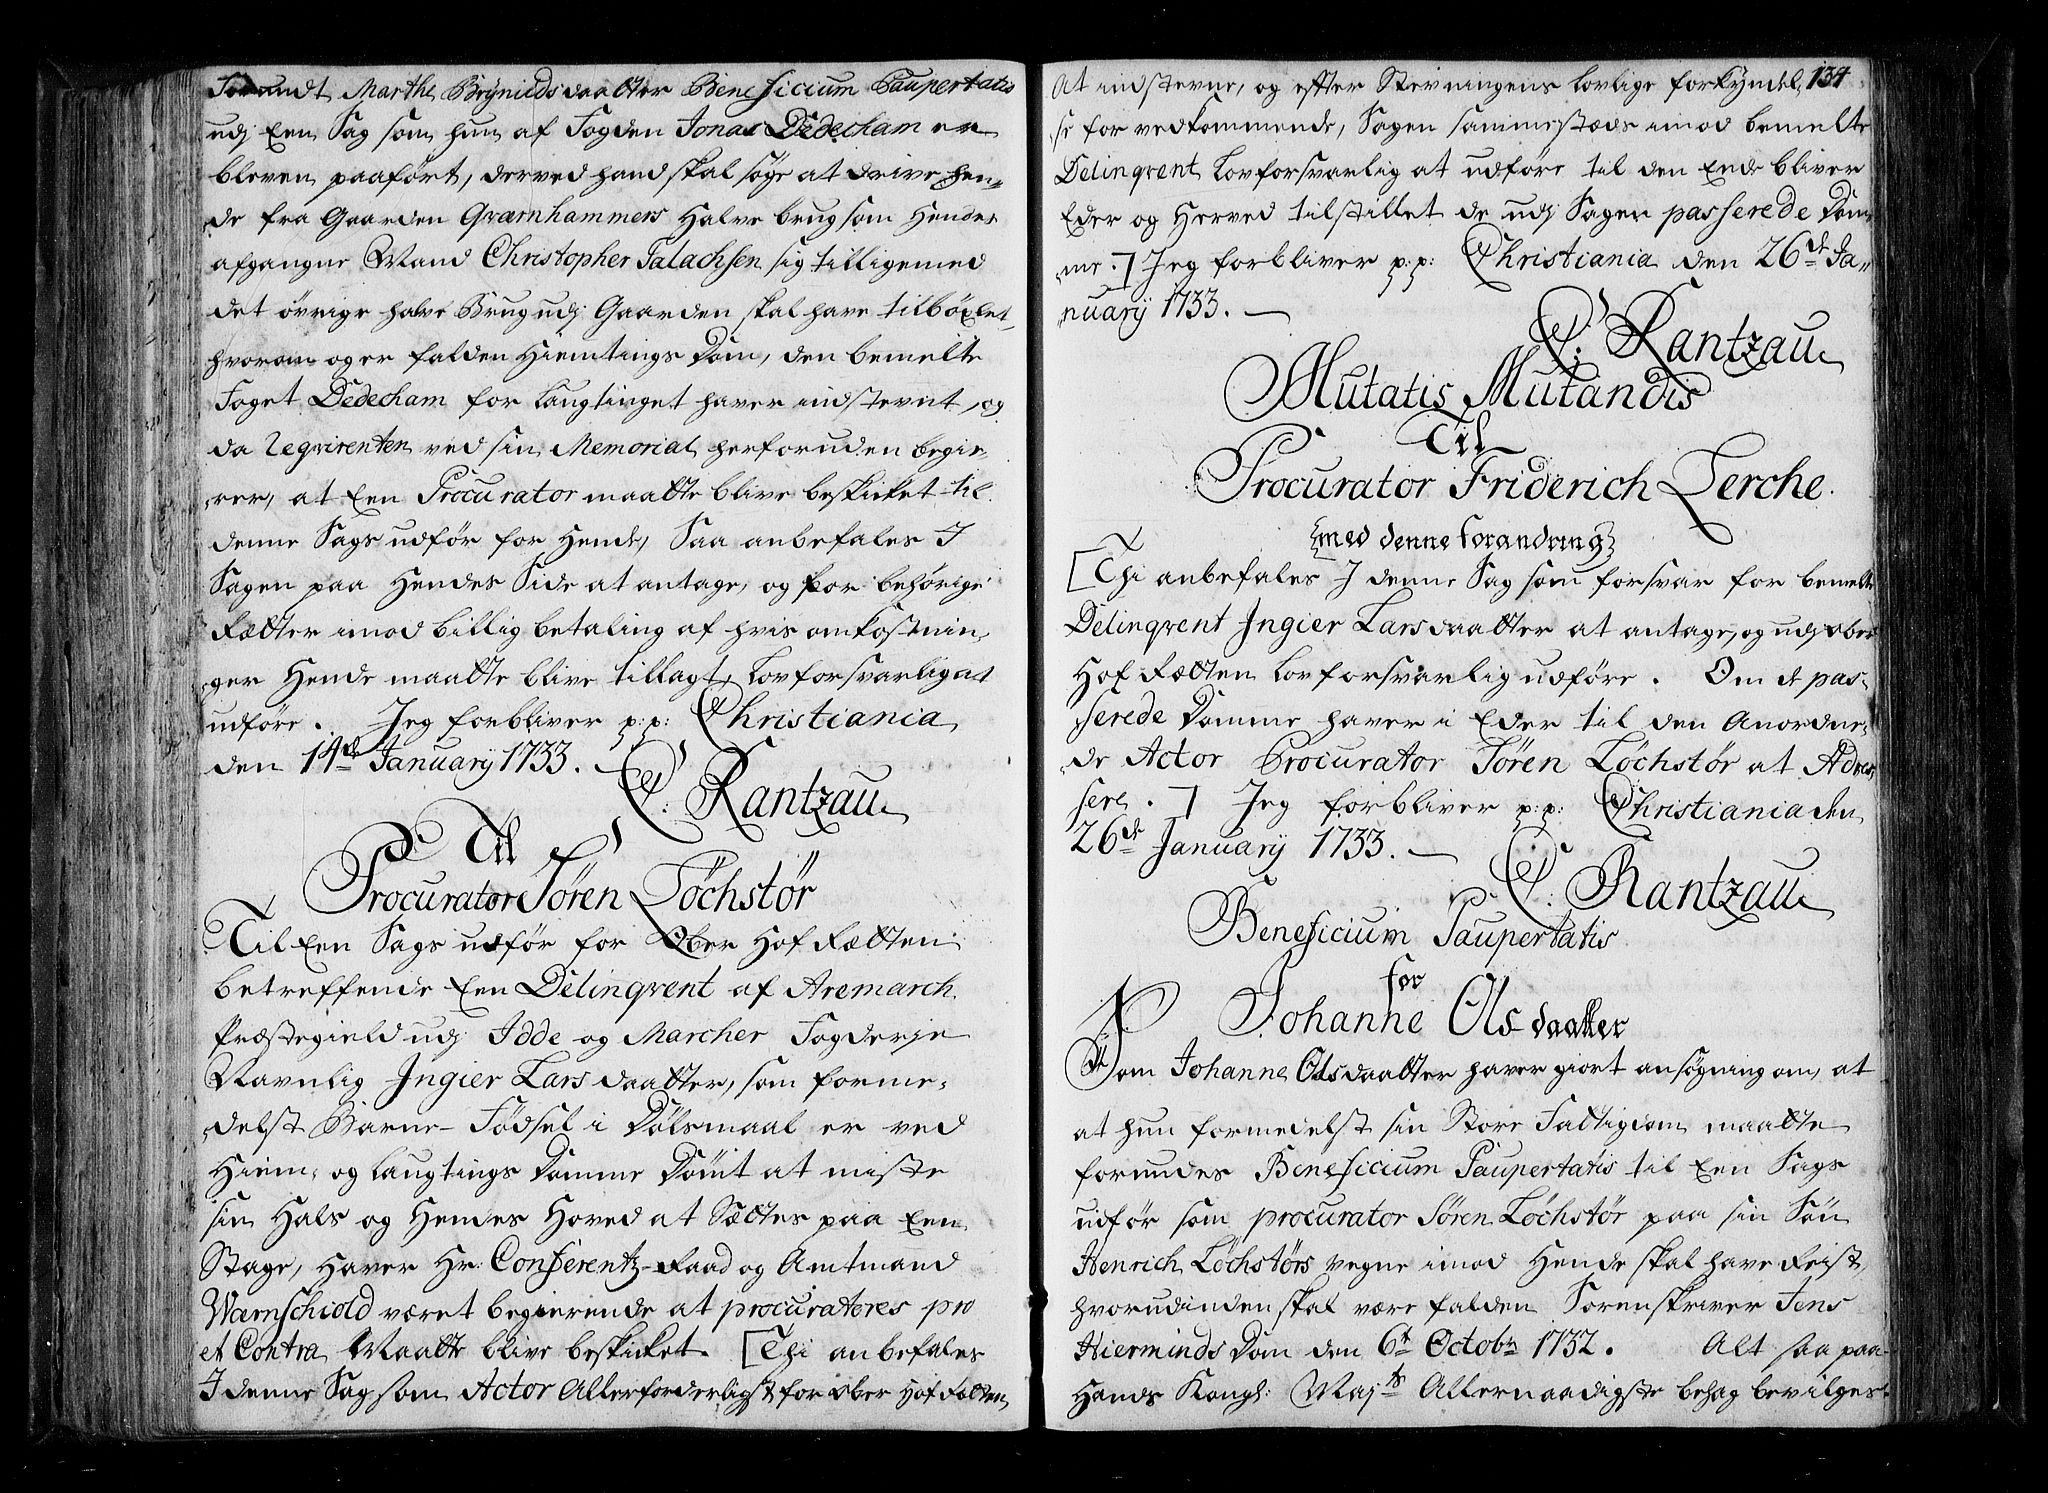 Forundt Marthe Brynilds daatter Beneficium Paupertatis
udj Een Sag som hun af Fogden Jonas Dedecham er
bleven paaført, derved hand skal søge at drive hen-
de fra Gaarden Qværnhammers Halve brug som Hendes
afgangne Mand Christopher Palachsen sig tilligemed
det øvrige halve Brug udj Gaarden skal have tilbøxlet,
hvorom og er falden Hiemtings Dom, den bemelte
Foget Dedecham for Laugtinget haver indstevnt, og
da Reqvirenten ved sin Memorial herforuden begie-
rer, at Een Procurator maatte blive beskicket til
denne Sags udför for Hende, Saa anbefales I
Sagen paa Hendes Side at antage, og for behørige
Rætter imod billig betaling af hvis omkostnin-
ger Hende maatte blive tillagt, Lovforsvarlig at
udføre. Jeg forbliver p:p: Christiania
den 14de January 1733.
C: Rantzau
Til
Procurator Søren Løchstør
Til Een Sags udför for Ober Hof Rætten
betreffende Een Delinqvent af Aremarch
Præstegield udj Idde og Marcher Fogderje
Navnlig Ingier Lars daatter, som forme-
delst Barne-Fødsel i Dølsmaal er ved
Hiem- og Laugtings Domme Dømt at miste
sin Hals og Hendes Hoved at Sættes paa Een
Stage, Haver Hr: Conferentz-Raad og Amtmand
Warnschiold været begierende at procuratores pro
et Contra Maatte blive beskicket. [Thi anbefales
I denne Sag som Actor Allerforderligst for Ober Hof Retten
134
At indstevne, og efter Stevningens lovlige forkyndel-
se for vedkommende, Sagen sammestæds imod bemelte
Delinqvent Lovforsvarlig at udføre til den Ende bliver
Eder og Herved tilstillet de udj Sagen passerede Dom-
me.] Jeg forbliver p:p: Christiania den 26de Ja-
nuary 1733.
C: Rantzau
Mutatis Mutandis
Til
Procurator Friderich Lerche.
{med denne forandring}
[Thi anbefales I denne Sag som forsvar for bemelte
Delinqvent Ingier Lars daatter at antage, og udj Ober
Hof Rætten Lovforsvarlig udføre. Om de pas-
serede Domme haver i Eder til den Anordne-
de Actor Procurator Søren Løchstør at Adres-
sere.] Jeg forbliver p:p: Christiania den
26de January 1733.
C: Rantzau
Beneficium Paupertatis
for
Johanne Ols daatter
Som Johanne Ols daatter haver giort ansøgning om, at
at hun formedelst sin Store Fattigdom maatte
forundes Beneficium Paupertatis til Een Sags
udför som procurator Søren Løchstør paa sin Søn
Henrich Løchstørs vegne imod Hende skal have Reist,
hvorudinden skal være falden Sorenskriver Jens
Hierminds Dom den 6te Octobr 1732. Alt saa paa
Hands Kongl: Majts Allernaadigste behag bevilges